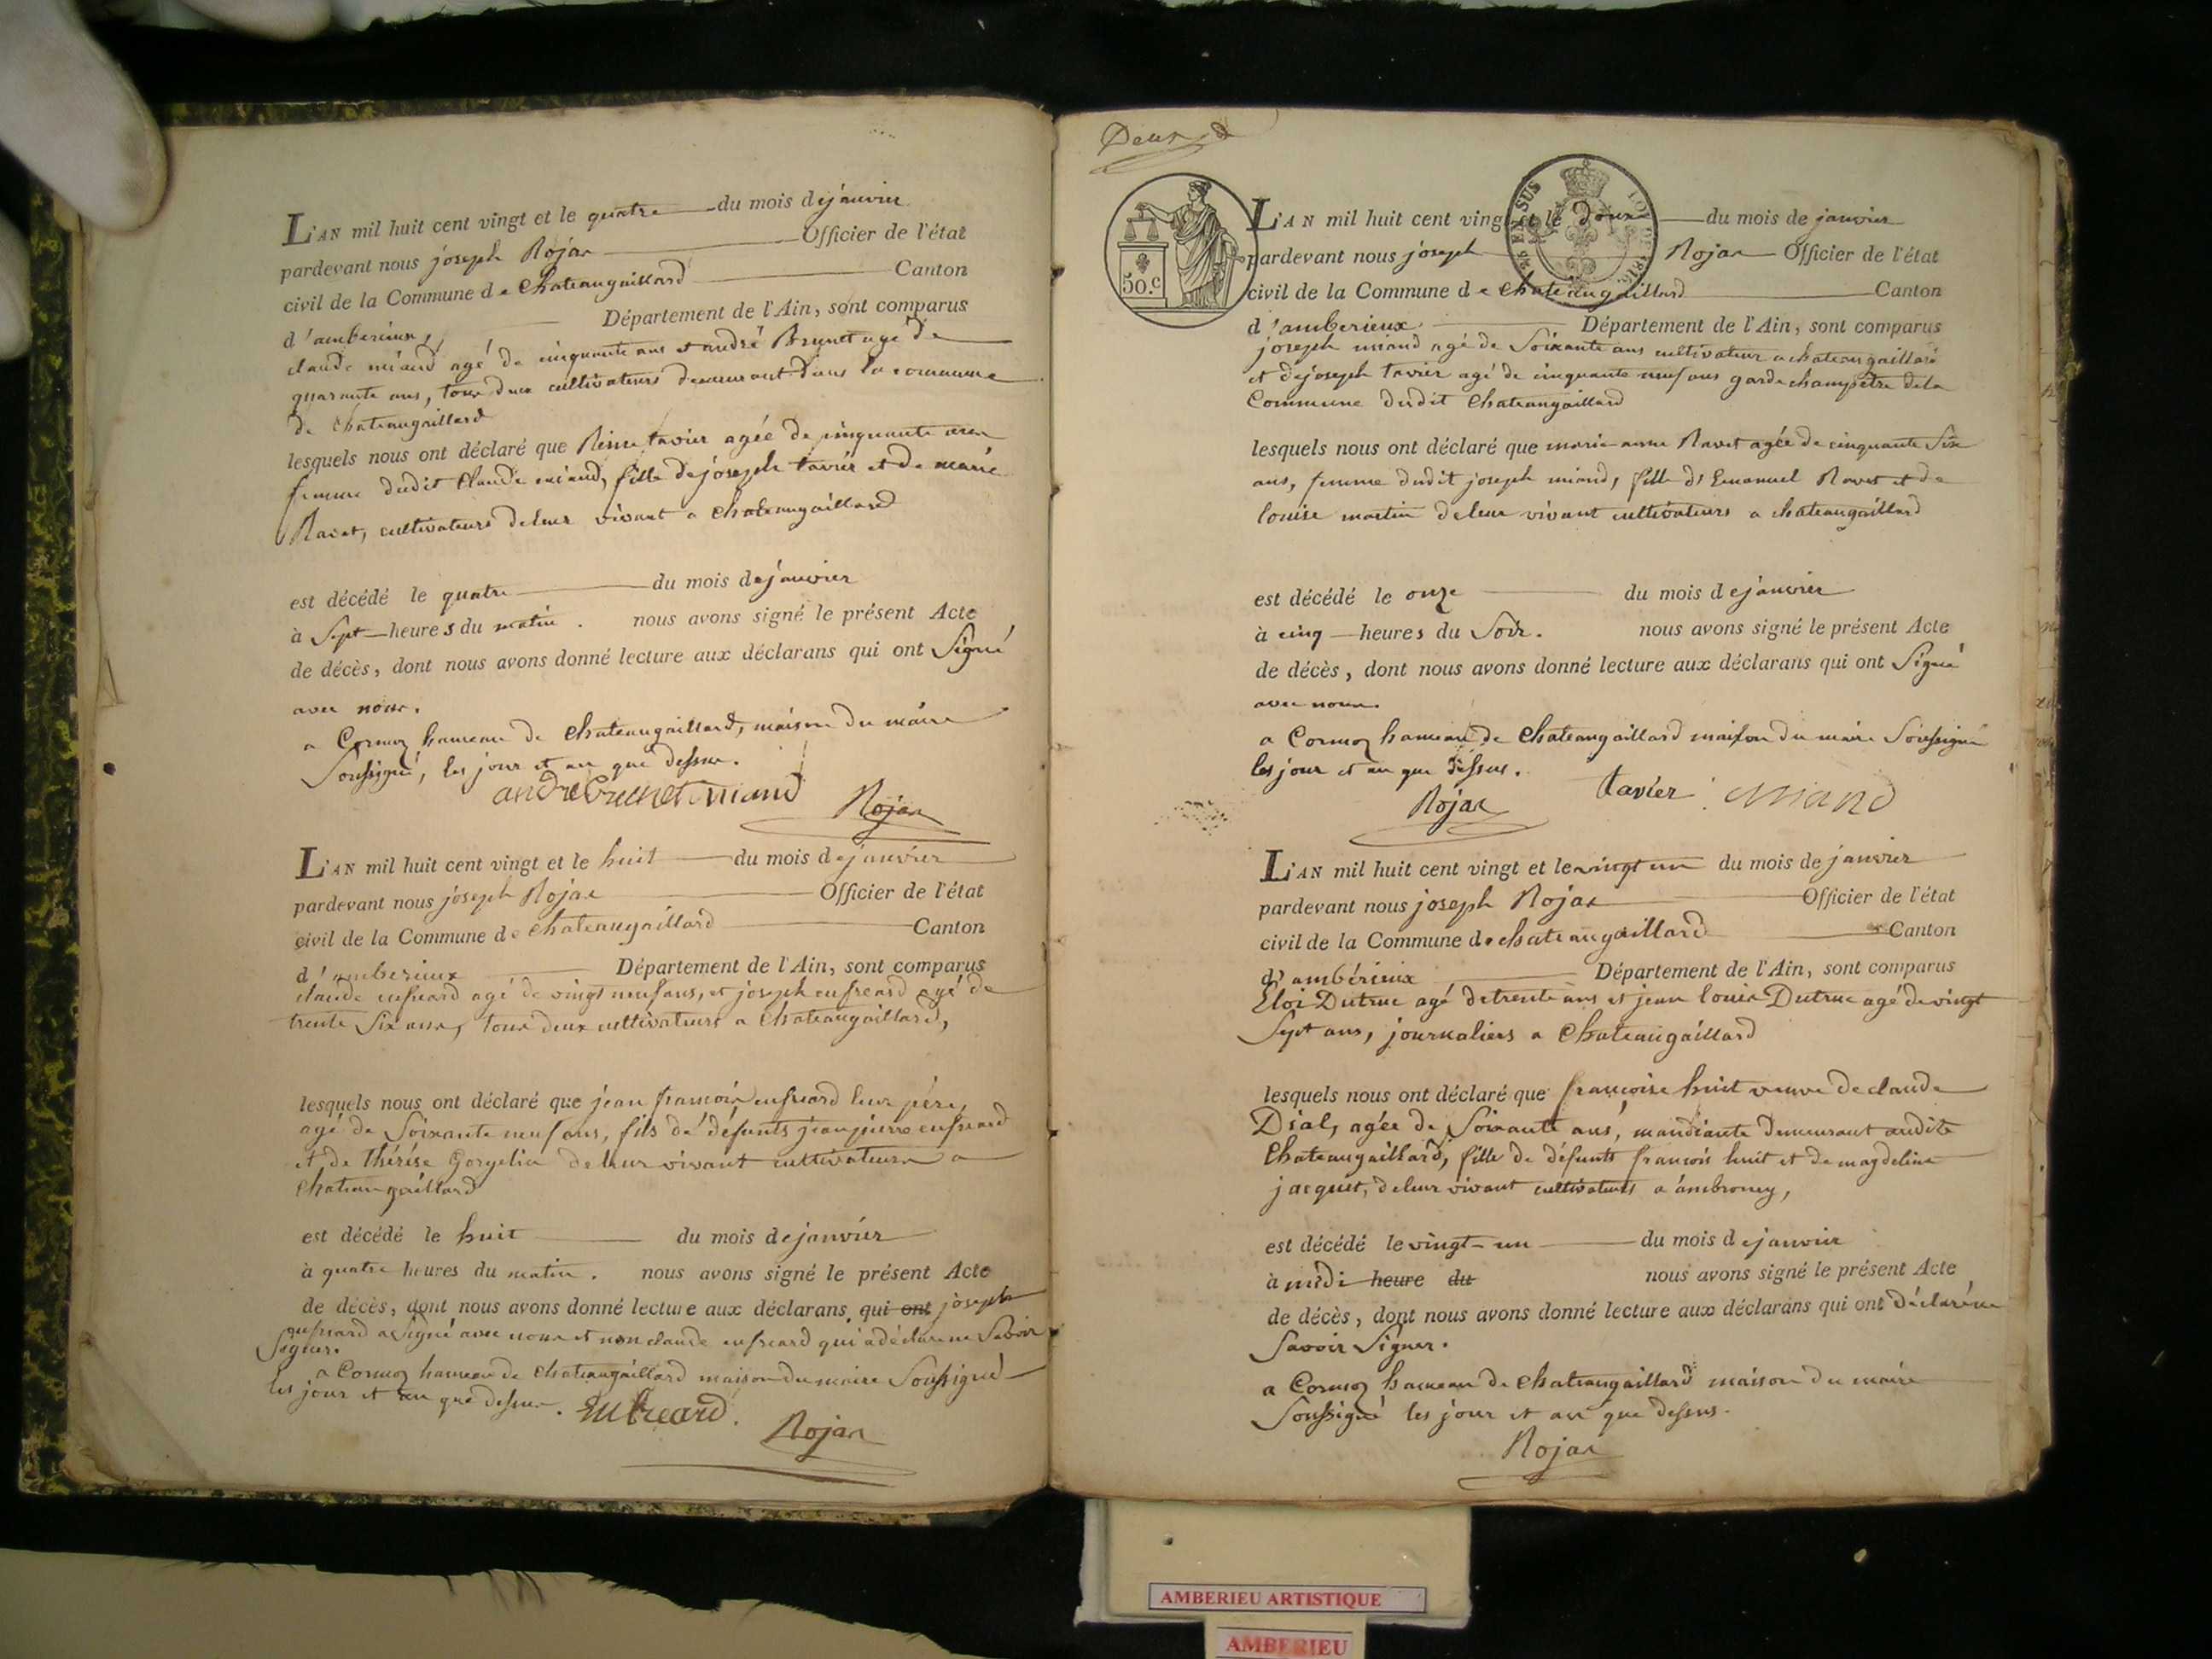 L'AN mil huit cent vingt et le quatre du mois de janvier
pardevant nous joseph Rojar Officier de l'état
civil de la Commune de Chateaugaillard Canton
d'amberieux, Département de l'Ain, sont comparus
claude miand agé de cinquante ans et andré Brunet agé de
quarante ans, tous deux cultivateurs demeurant dans la commune
de Chateaugaillard
lesquels nous ont déclaré que Reine tavier agée de cinquante ans
femme dudit Claude miand, fille de joseph tavier et de marie
Ravet, cultivateurs de leur vivant a Chateaugaillard
est décédé le quatre du mois de janvier
à Sept heures du matin. nous avons signé le présent Acte
de décès, dont nous avons donné lecture aux déclarans qui ont Signé
avec nous.
a Cormoz hameau de Chateaugaillard, maison du maire
Soussigné, les jour et an que dessus.
andré brunet miand
Rojar
L'AN mil huit cent vingt et le huit du mois de janvier
pardevant nous joseph Rojar Officier de l'état
civil de la Commune de Chateaugaillard Canton
d'amberieux Département de l'Ain, sont comparus
claude cusreard agé de vingt neuf ans, et joseph agé de
trente Six ans, tous deux cultivateurs a Chateaugaillard,
lesquels nous ont déclaré que jean françois leur père,
agé de Soixante neuf ans, fils de défunts jean pierre
et de thérése Gorgelin de leur vivant cultivateurs a
Chateaugaillard
est décédé le huit du mois de janvier
à quatre heures du matin. nous avons signé le présent Acte
de décès, dont nous avons donné lecture aux déclarans, qui ont joseph
a Signé avec nous et non claude qui a déclaré ne Savoir
Signer.
a Cormoz hameau de Chateaugaillard maison du maire Soussigné
les jour et an que dessus.
Rojar
Deux
50.c
EN SUS
LOI DE 1816
L'AN mil huit cent vingt et le douze du mois de janvier
pardevant nous joseph Rojar Officier de l'état
civil de la Commune de Chateaugaillard Canton
d'amberieux Département de l'Ain, sont comparus
joseph miand agé de Soixante ans cultivateur a chateaugaillard
et de joseph tavier agé de cinquante neuf ans garde champêtre de la
Commune dudit Chateaugaillard
lesquels nous ont déclaré que marie anne Ravet agée de cinquante Six
ans, femme dudit joseph miand, fille d'Emanuel Ravet et de
louise martin de leur vivant cultivateurs a chateaugaillard
est décédé le onze du mois de janvier
à cinq heures du Soir. nous avons signé le présent Acte
de décès, dont nous avons donné lecture aux déclarans qui ont Signé
avec nous.
a Cormoz hameau de Chateaugaillard maison du maire Soussigné
les jour et an que dessus.
Rojar tavier miand
L'AN mil huit cent vingt et le vingt un du mois de janvier
pardevant nous joseph Rojar Officier de l'état
civil de la Commune de chateaugaillard Canton
d'ambérieux Département de l'Ain, sont comparus
Eloi Dutruc agé de trente ans et jean louis Dutruc agé de vingt
Sept ans, journaliers a Chateaugaillard
lesquels nous ont déclaré que françoise huit veuve de claude
Dial, agée de Soixante ans, mandiante demeurant audite
Chateaugaillard, fille de défunts françois huit et de magdeline
jacquet, de leur vivant cultivateurs a ambronay,
est décédé le vingt-un du mois de janvier
à midi heure du nous avons signé le présent Acte
de décès, dont nous avons donné lecture aux déclarans qui ont déclaré ne
Savoir Signer.
a Cormoz hameau de Chateaugaillard maison du maire
Soussigné les jour et an que dessus.
Rojar
AMBERIEU ARTISTIQUE
AMBERIEU